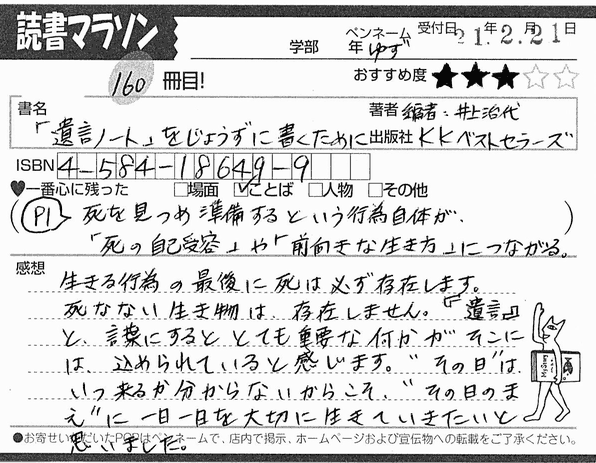 読書マラソン
学部 年 ペンネーム ゆず 受付日 21年2月21日
160冊目!
おすすめ度 ★★★☆☆
書名 著者 編者：井上治代
「遺言ノート」をじょうずに書くために 出版社 KKベストセラーズ
ISBN 4-584-18649-9
♥一番心に残った □場面 ☑ことば □人物 □その他
(P1 死を見つめ準備するという行為自体が、
「死の自己受容」や「前向きな生き方」につながる。)
感想
生きる行為の最後に死は必ず存在します。
死なない生き物は、存在しません。『遺言』
と、言葉にすると とても重要な何かがそこに
は、込められていると感じます。"その日"は、
いつ来るか分からないからこそ、"その日のま
え"に一日一日を大切に生きていきたいと
思いました。
●お寄せいただいたPOPはペンネームで、店内で掲示、ホームページおよび宣伝物への転載をご了承ください。